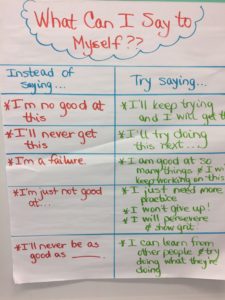 What Can I Say to
Myself??
Instead of
saying...
Try saying...
*I'm no good at
this
*I'll keep trying
and I will get
*I'll never get
this
*I'll try doing
this next...
*I'm a failure.
*I am good at so
many things & I will
keep working on this
*I'm just not good
at...
*I just need more
practice
*I won't give up!
*I will persevere
& show grit
*I'll never be as
good as ____.
*I can learn from
other people & try
doing what they're
doing